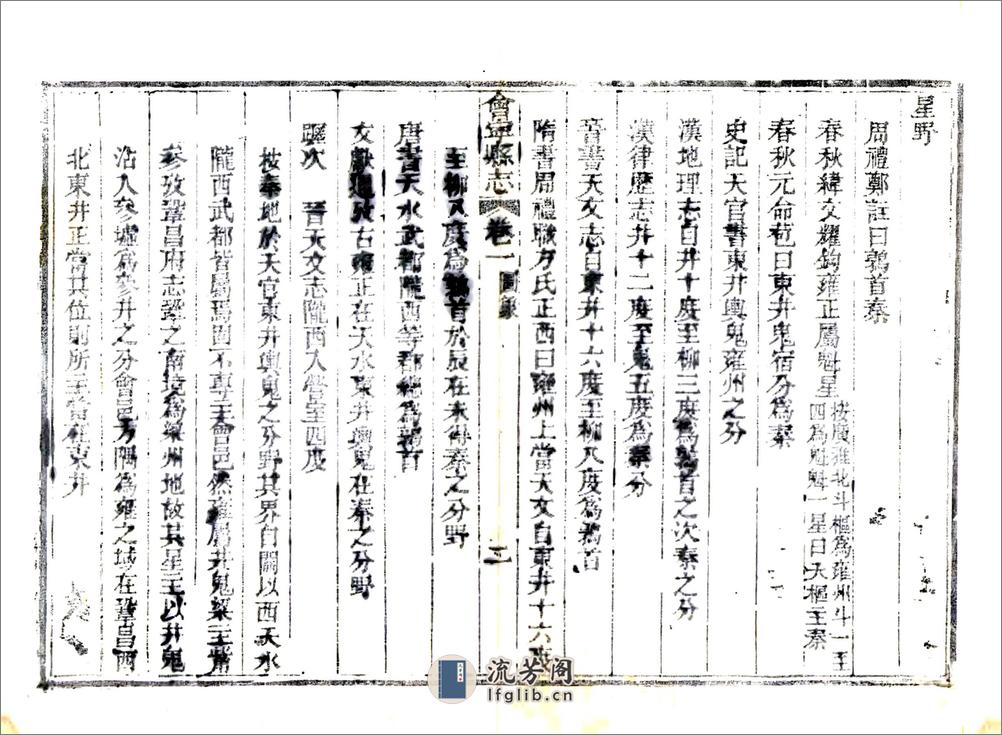 星野
周禮鄭註曰鶉首秦
春秋緯文耀鈎雍正屬魁星 按廣雅北斗樞為雍州斗一至四為魁魁一星曰天樞主秦
春秋元命苞曰東井鬼宿分為秦
史記天官書東井輿鬼雍州之分
漢地理志自井十度至柳三度為鶉首之次秦之分
漢律歷志井十二度至鬼五度為秦分
晉書天文志自東井十六度至柳八度為鶉首
隋書周禮職方氏正西曰雍州上當天文自東井十六度
會寧縣志 卷一 圖象 二
至柳八度為鶉首於辰在未得秦之分野
唐書天水武都隴西等郡總為鶉首
文獻通攷古雍正在天水東井輿鬼在秦之分野
躔次 晉天文志隴西入營室四度
按秦地於天官東井輿鬼之分野其界自關以西天水
隴西武都皆屬焉固不專主會邑然雍屬井鬼梁主觜
參攷鞏昌府志鞏之南境為梁州地故其星主以井鬼
沾入參墟為參井之分會邑方隅為雍之域在鞏昌西
北東井正當其位則所主當在東井
流芳阁
lfglib.cn